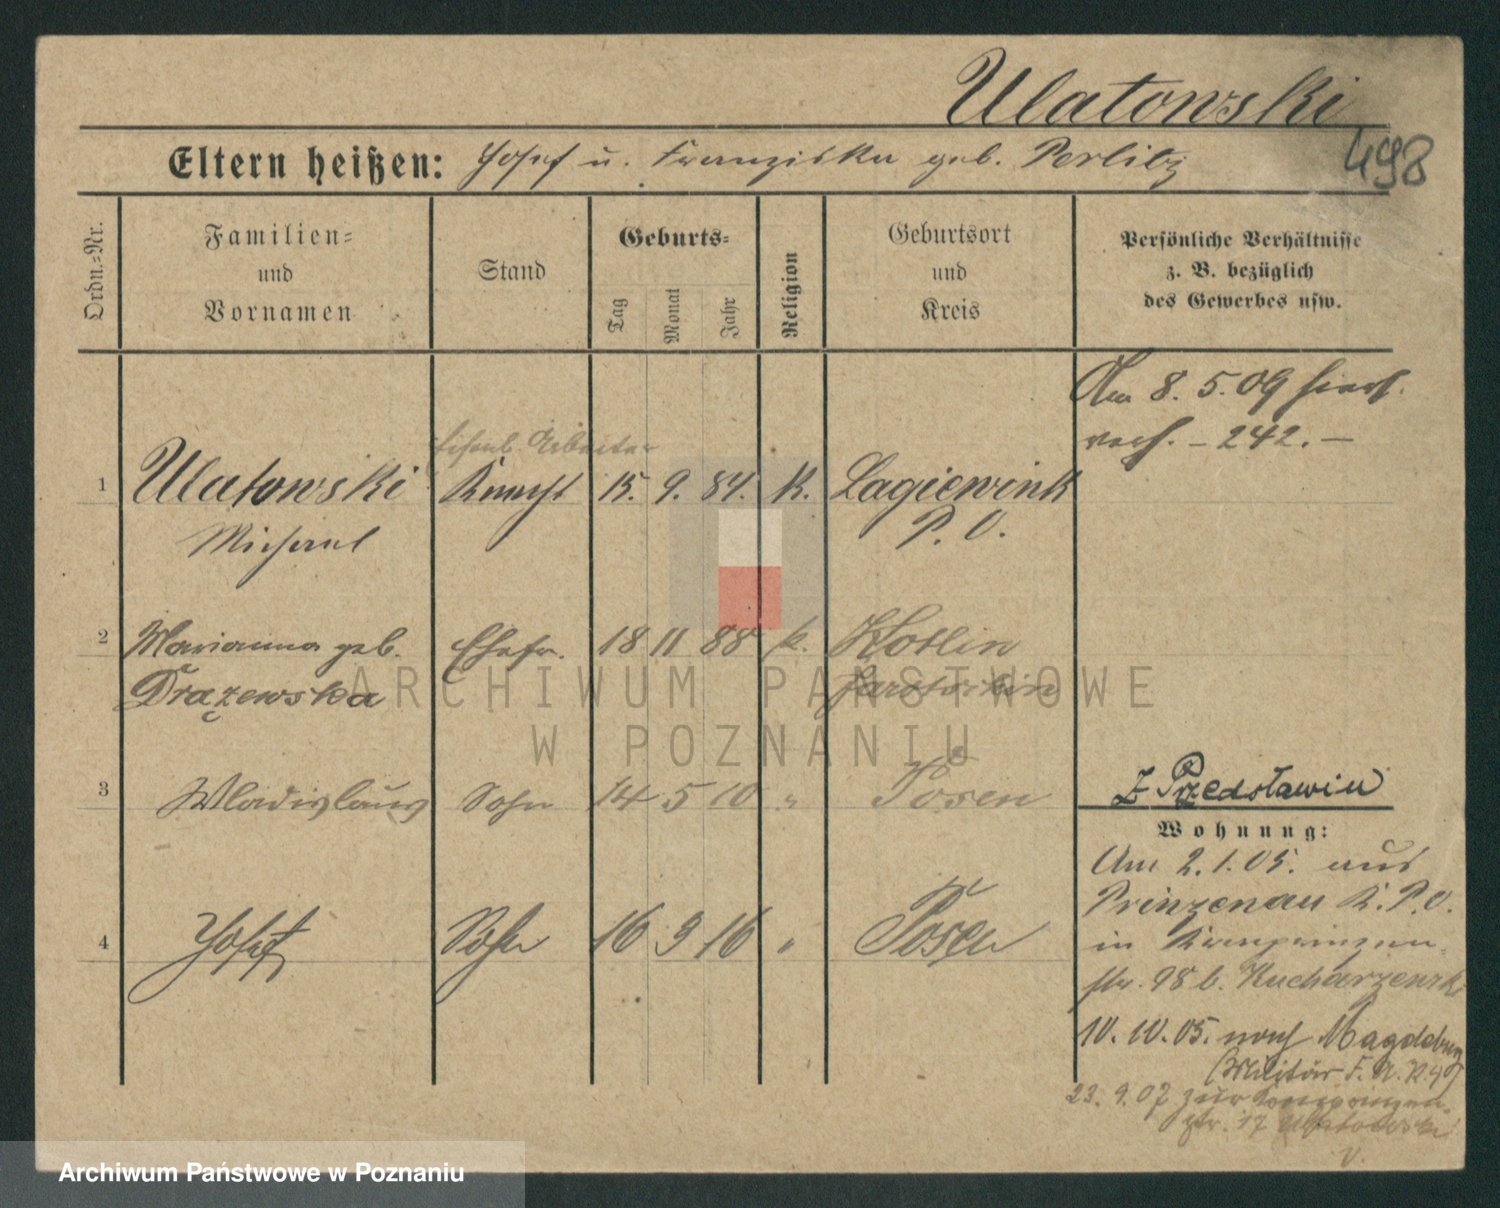 Ulatowski
498
Eltern heißen: Josef u. Franziska geb. Perlitz
Ordn.-Nr.
Familien-
und
Vornamen
Stand
Geburts-
Tag
Monat
Jahr
Religion
Geburtsort
und
Kreis
Persönliche Verhältnisse
z. B. bezüglich
des Gewerbes usw.
Am 8. 5. 09 hierf.
verh. - 242. -
Arbeiter
1 Ulatowski Knecht 15. 9. 84. K. Lagiewink
Michael P. O.
2 Marianna geb. Ehefr. 18 11 88 k. Kotlin
Drążewska Jarotschin
3 Wladislaus Sohn 14 5 10 " Posen
4 Josef Sohn 16 3 16 " Posen
z Przedsławiu
Wohnung:
Am 2. 1. 05. aus
Prinzenau K. P. O.
in Kronprinzen-
str. 98 b. Kucharzensk
10. 10. 05. nach Magdeburg
(Militär F. A. R. 4)
23. 9. 07 zur Kronprinzen-
str. 17 Ulatowski
V.
ARCHIWUM PAŃSTWOWE
W POZNANIU
Archiwum Państwowe w Poznaniu